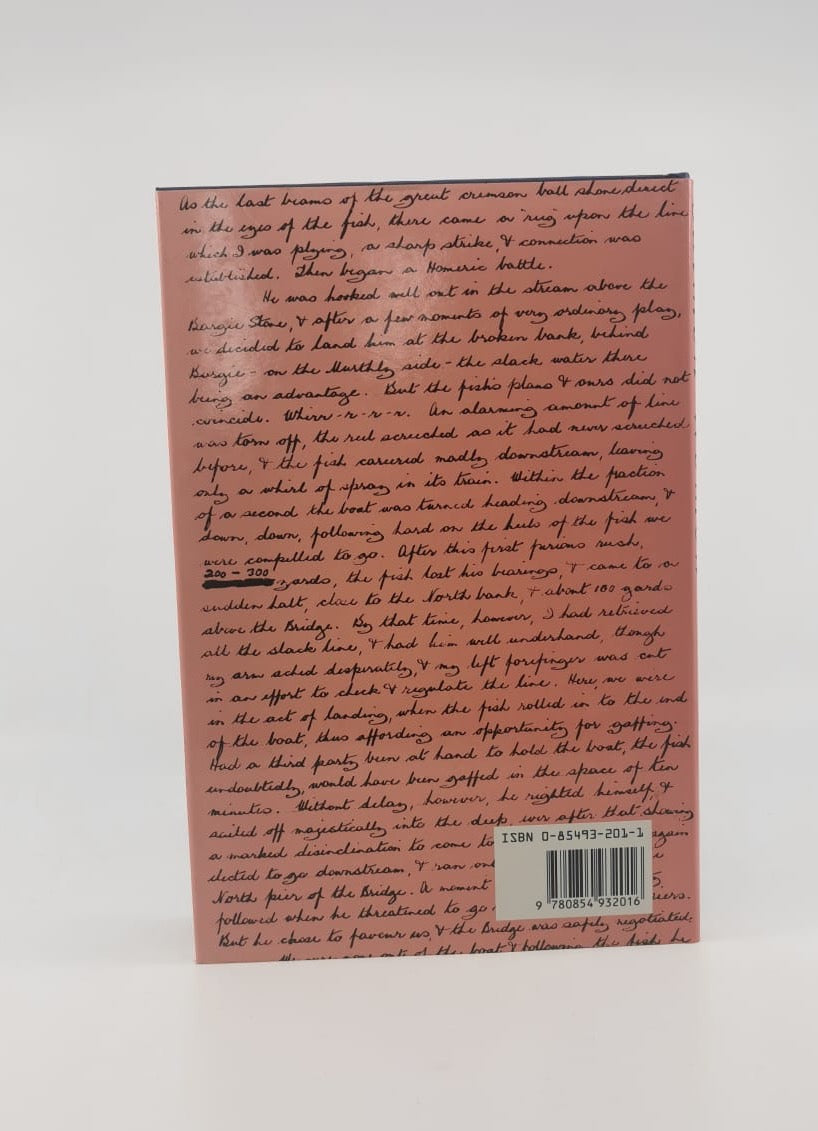 As the last beams of the great crimson ball shone direct
in the eyes of the fish, there came a 'rug' upon the line
which I was plying, a sharp strike, & connection was
established. Then began a Homeric battle.
He was hooked well out in the stream above the
Bargie Stone, & after a few moments of very ordinary play,
we decided to land him at the broken bank, behind
Bargie - on the Murthly side - the slack water there
being an advantage. But the fish's plans & ours did not
coincide. Whirr-r-r-r. An alarming amount of line
was torn off, the reel screeched as it had never screeched
before, & the fish careered madly downstream, leaving
only a whirl of spray in its train. Within the fraction
of a second the boat was turned heading downstream, &
down, down, following hard on the heels of the fish we
were compelled to go. After this first furious rush,
200 - 300 yards, the fish lost his bearings, & came to a
sudden halt, close to the North bank, & about 100 yards
above the Bridge. By that time, however, I had retrieved
all the slack line, & had him well underhand, though
my arm ached desperately, & my left forefinger was cut
in an effort to check & regulate the line. Here, we were
in the act of landing, when the fish rolled in to the end
of the boat, thus affording an opportunity for gaffing.
Had a third party been at hand to hold the boat, the fish
undoubtedly, would have been gaffed in the space of ten
minutes. Without delay, however, he righted himself, &
sailed off majestically into the deep, ever after that showing
a marked disinclination to come to
again
elected to go downstream, & ran
North pier of the Bridge. A moment
followed when he threatened to go
But he chose to favour us, & the Bridge was safely negotiated.
We were now out of the boat & following the fish, he
ISBN 0-85493-201-1
9 780854 932016